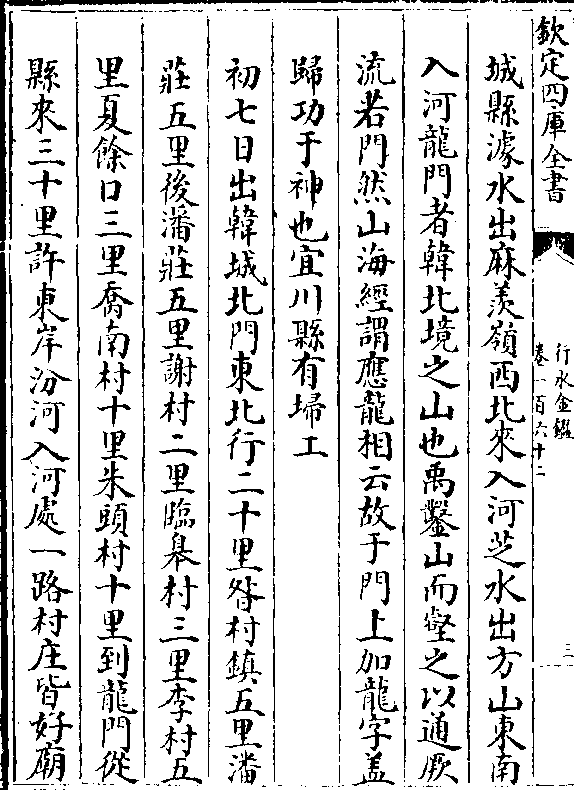 欽定四庫全書
行水金鑑
卷一百六十二
三
城縣澽水出麻羨嶺西北來入河芝水出方山東南
入河龍門者韓北境之山也禹鑿山而壑之以通厥
流若門然山海經謂應龍相云故于門上加龍字蓋
歸功于神也宜川縣有埽工
初七日出韓城北門東北行二十里昝村鎮五里潘
莊五里後潘莊五里謝村二里臨皋村三里李村五
里夏餘口三里喬南村十里朱頭村十里到龍門從
縣來三十里許東岸汾河入河處一路村庄皆好廟